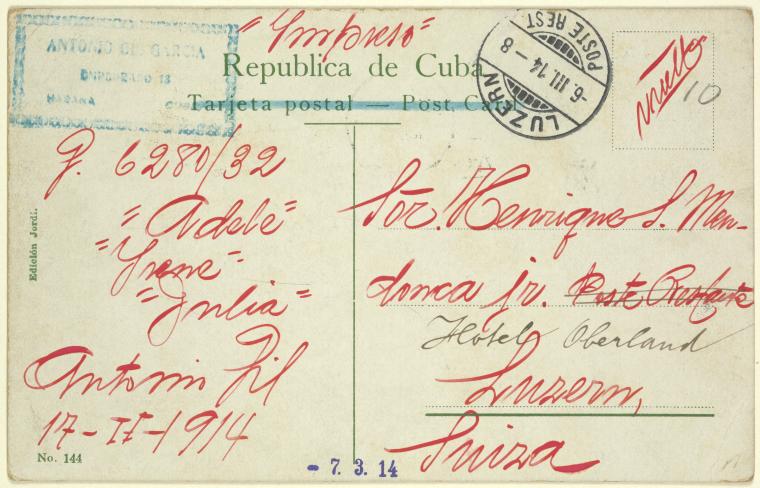 "Impreso"
ANTONIO GIL GARCIA
EMPEDRADO 18
HABANA
Republica de Cuba
Tarjeta postal — Post Card
LUZERN
-6.III.14-8
POSTE REST
vuelto
10
P. 6280/32
"Adele"
"Irene"
"Julia"
Antonio Gil
17-II-1914
Edición Jordi.
No. 144
Sór. Henrique S. Men-
donca jr. Poste Restante
Hotel Oberland
Luzern,
Suiza
- 7. 3. 14